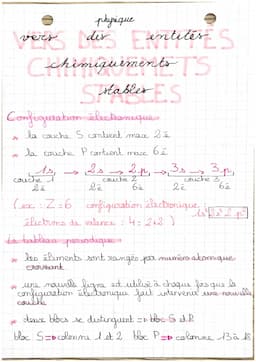 physique
vers des entités
VERS DES ENTITÉS
chimiquements
CHIMIQUEMETS
stables
STABLES
Configuration électronique
* la couche S contient max 2é
* la couche P contient max 6é
1s, → 2s → 2p, → 3s → 3p,
couche 1 couche 2 couche 3
2é 2é 6é 2é 6é
(ex : Z=6 configuration électronique : 1s² 2s² 2p²
électrons de valence : 4 = 2+2)
Le tableau periodique
* les éléments sont rangés par numéro atomique
croissant
* une nouvelle ligne est utilisé à chaque fois que la
configuration électronique fait intervenir une nouvelle
couche
* deux blocs se distinguent => bloc S et P
bloc S => colonne 1 et 2 bloc P => colonne 13 à 18